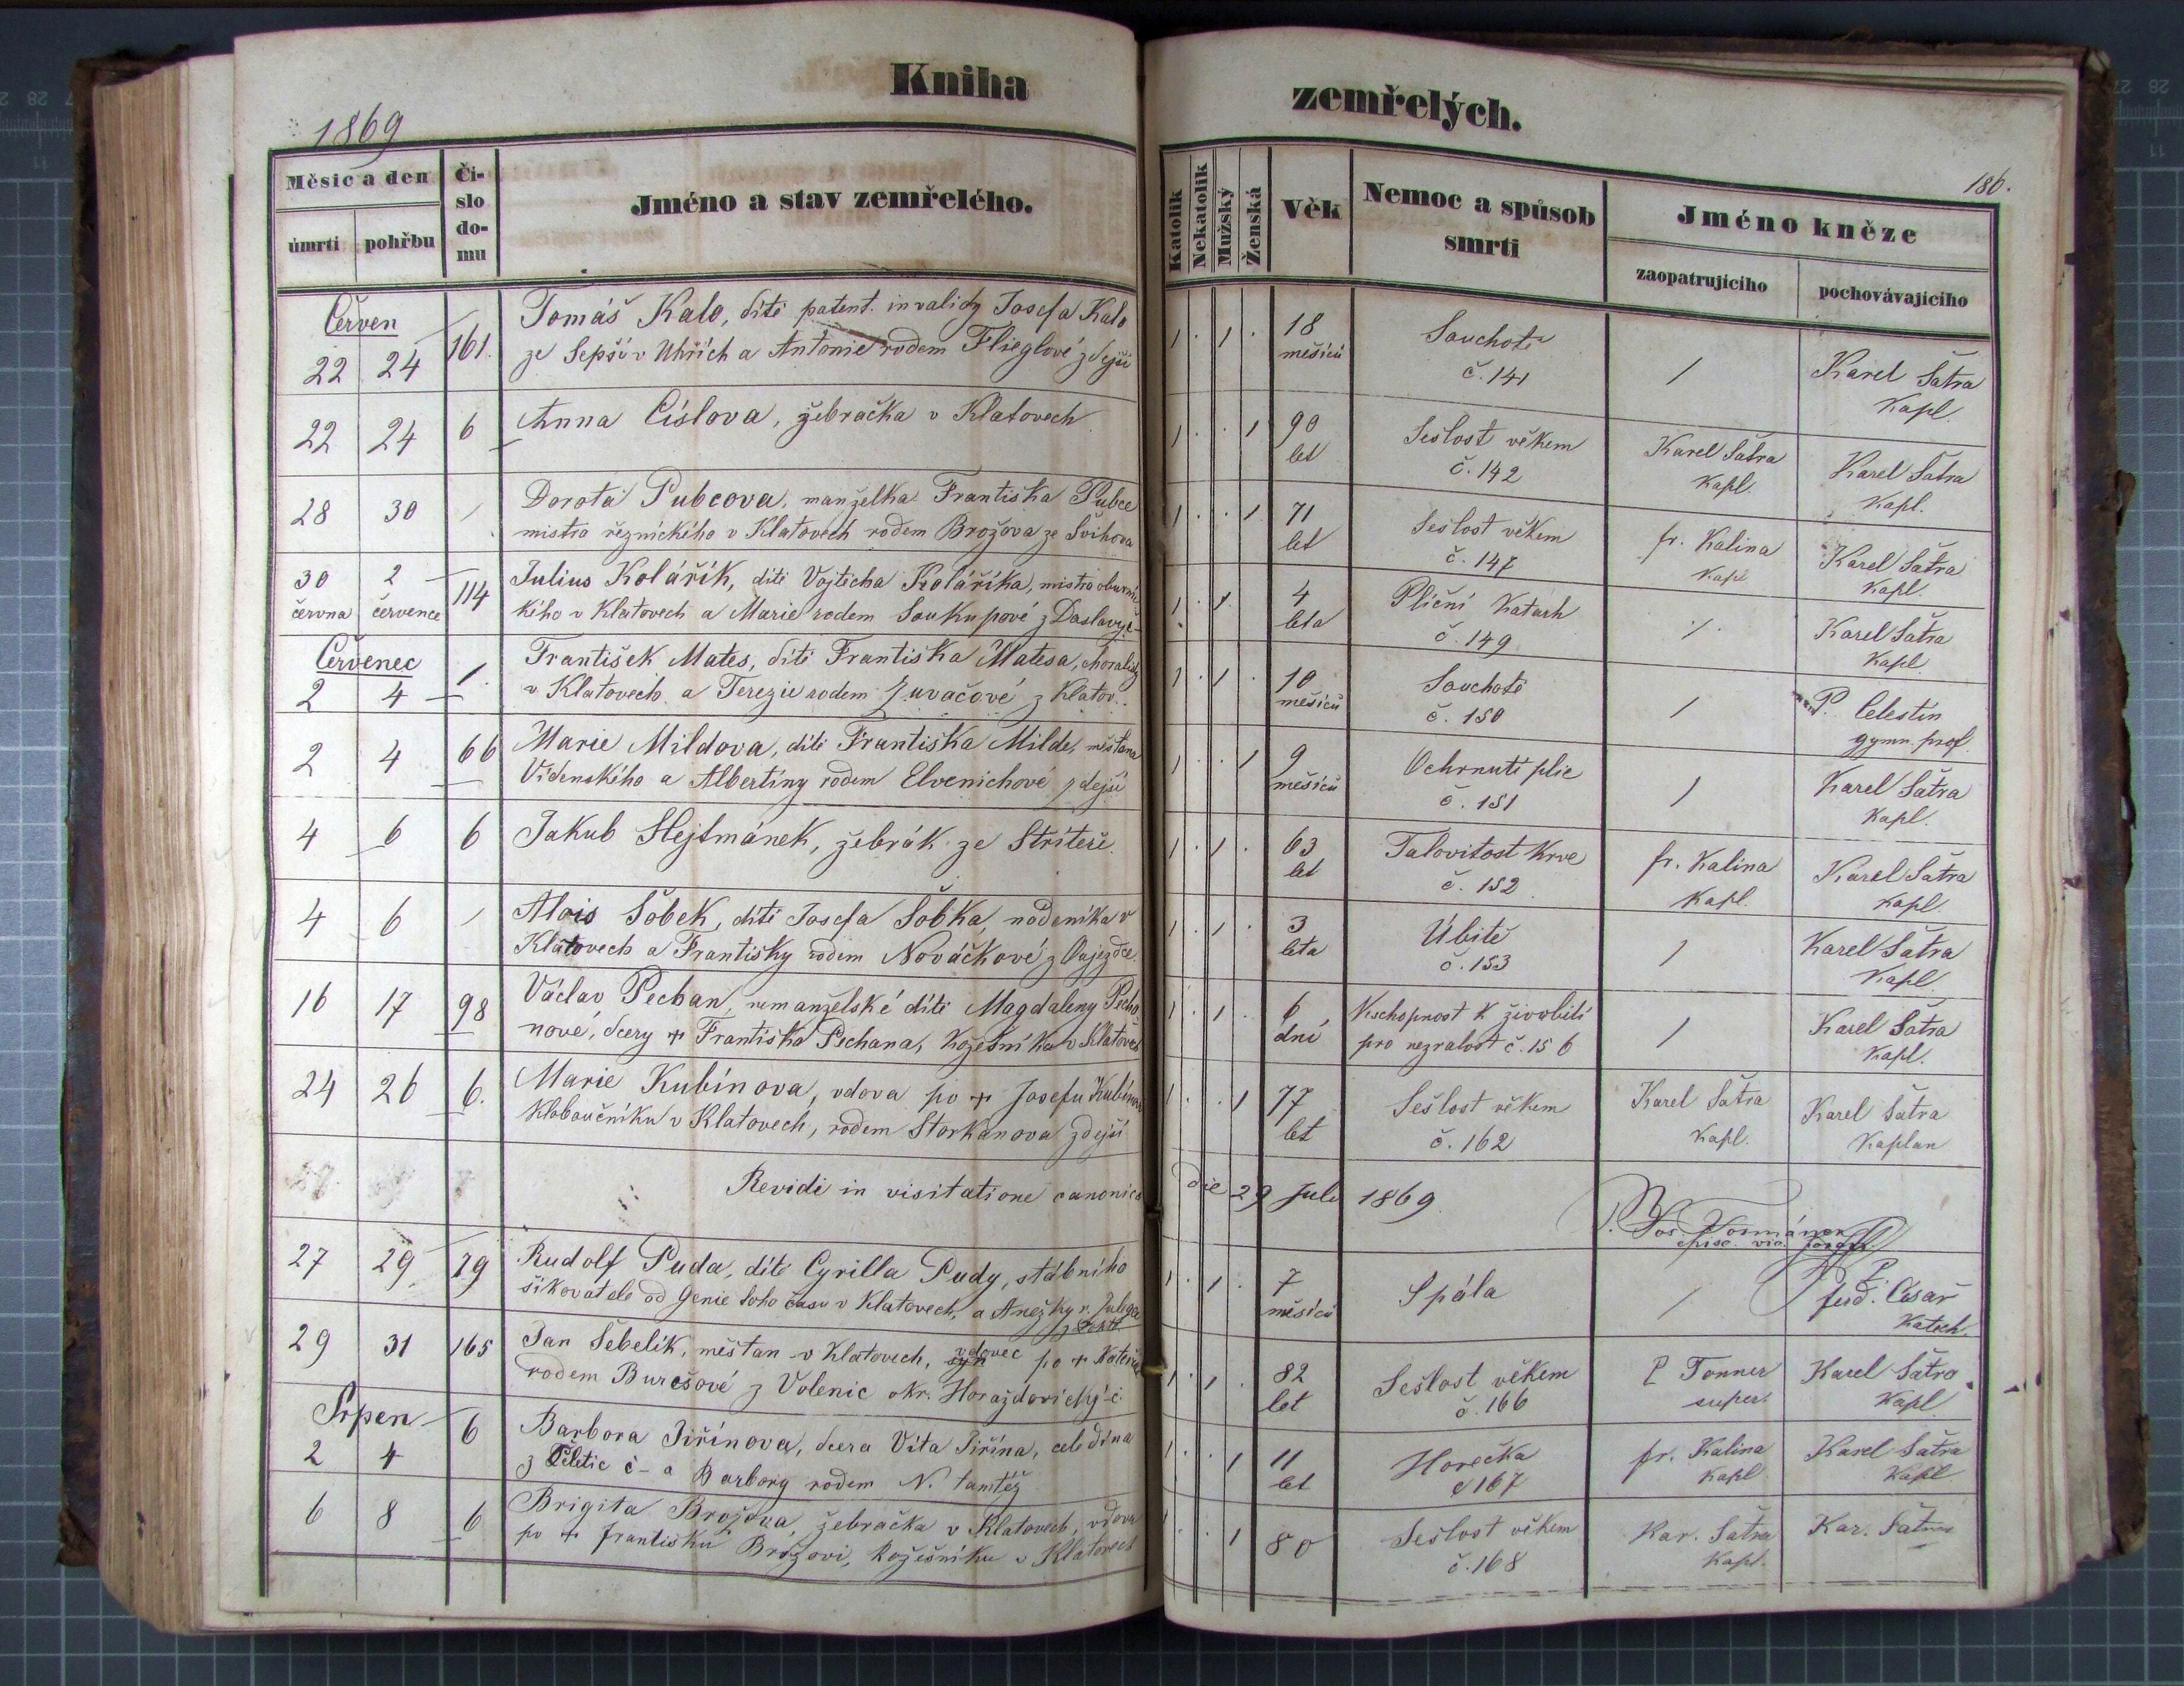 Kniha zemřelých.
1869
186.
Měsíc a den
úmrtí
pohřbu
Číslo domu
Jméno a stav zemřelého.
Katolík
Nekatolík
Mužský
Ženská
Věk
Nemoc a spůsob smrti
Jméno kněze
zaopatrujícího
pochovávajícího
Červen
22 24 161. Tomáš Kalo, dítě patent. invalidy Josefa Kalo
ze Sepší v Uhřích a Antonie rodem Flieglové zdejší
1 . 1 . 18 měsíců Souchotě č. 141 / Karel Šatra Kapl.
22 24 6 Anna Číslova, žebračka v Klatovech
1 . . 1 90 let Sešlost věkem č. 142 Karel Šatra Kapl. Karel Šatra Kapl.
28 30 / Dorota Pubcova, manželka Františka Pubce
mistra řeznického v Klatovech rodem Brožova ze Švihova
1 . . 1 71 let Sešlost věkem č. 147 fr. Kalina Kapl Karel Šatra Kapl.
30 června 2 července 114 Julius Kolářík, dítě Vojtěcha Koláříka, mistra obuvni-
kého v Klatovech a Marie rodem Soukupové z
1 . 1 . 4 leta Plíční Katarh č. 149 / Karel Šatra Kapl
Červenec
2 4 1. František Mates, dítě Františka Matesa, choralisty
v Klatovech a Terezie rodem Zuvačové z Klatov.
1 . 1 . 10 měsíců Souchotě č. 150 / P. Celestin gymn. prof.
2 4 66 Marie Mildova, dítě Františka Milde, měšťana
Vídenského a Albertiny rodem Elvenichové zdejší
1 . . 1 9 měsíců Ochrnutí plic č. 151 / Karel Šatra Kapl.
4 6 6 Jakub Hejtmánek, žebrák ze Stríteže.
1 . 1 . 63 let Talovitost Krve č. 152 fr. Kalina Kapl. Karel Šatra Kapl.
4 6 / Alois Šobek, dítě Josefa Šobka, nádeníka v
Klatovech a Františky rodem Nováčkové z Oujezdce.
1 . 1 . 3 leta Úbitě č. 153 / Karel Šatra Kapl
16 17 98 Václav Pechan, nemanželské dítě Magdaleny Pecha-
nové, dcery + Františka Pechana, kožešníka v Klatovech
1 . 1 . 6 dní Neschopnost k živobití pro nezralost č. 156 / Karel Šatra Kapl.
24 26 6. Marie Kubínova, vdova po + Josefu Kubínovi
Kloboučníku v Klatovech, rodem Storkanova zdejší
1 . . 1 77 let Sešlost věkem č. 162 Karel Šatra Kapl. Karel Šatra Kaplan
Revidi in visitatione canonica die 29 Juli 1869
Jos. Tománek
episc. vic.
27 29 79 Rudolf Puda, dítě Cyrilla Pudy, stábního
šikovatele od Genie toho času v Klatovech, a Anežky r.
1 . 1 . 7 měsíců Spála / P. ferd. Císař Katech.
29 31 165 Jan Šebelík, měšťan v Klatovech, vdovec po + Kateřině
rodem Burešové z Volenic okr. Horažďovický č.
1 . 1 . 82 let Sešlost věkem č. 166 P Tonner super. Karel Šatra Kapl
Srpen
2 4 6 Barbora Jiřínova, dcera Víta Jiřína, čeledína
z č - a Barbory rodem N. tamtéž
1 . . 1 11 let Horečka č 167 fr. Kalina Kapl Karel Šatra Kapl
6 8 6 Brigita Brožova, žebračka v Klatovech, vdova
po + františku Brožovi, kožešníku v Klatovech
1 . . 1 80 Sešlost věkem č. 168 Kar. Šatra Kapl. Kar. Šatra